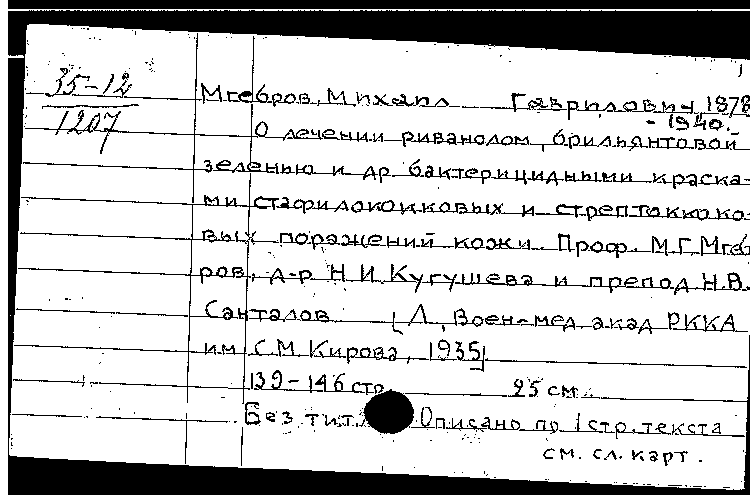 35-12
1207
Мгебров, Михаил Гаврилович, 1878
- 1940.
О лечении риванолом, брильянтовой
зеленью и др. бактерицидными краска-
ми стафилококковых и стрептококко-
вых поражений кожи. Проф. М.Г. Мгеб
ров, д-р Н.И. Кугушева и препод Н.В.
Санталов [Л., Воен-мед. акад РККА
им С.М. Кирова, 1935]
139-146 стр. 25 см.
Без тит. Описано по 1 стр. текста
см. сл. карт.